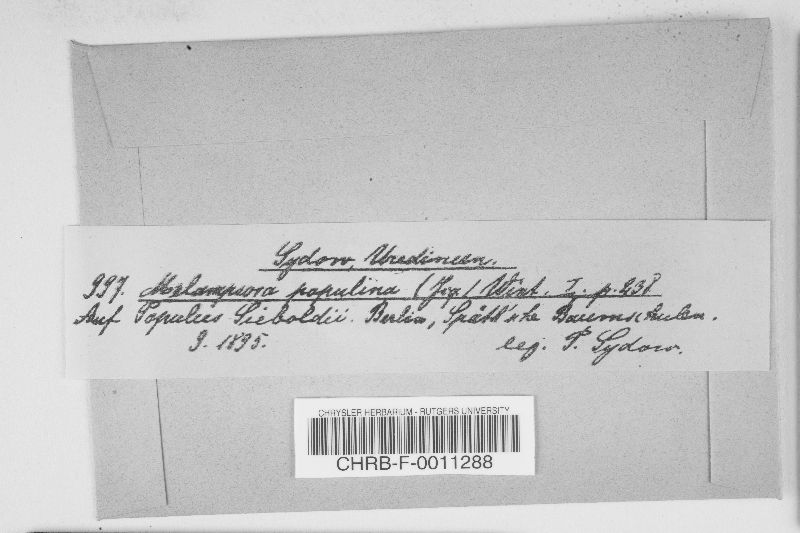 Sydow, Uredineen.
997. Melampsora populina (Jcq.) Wint. I. p. 238
Auf Populus Sieboldii. Berlin, Späth'sche Baumschulen.
9. 1895. leg. P. Sydow.
CHRYSLER HERBARIUM - RUTGERS UNIVERSITY
CHRB-F-0011288